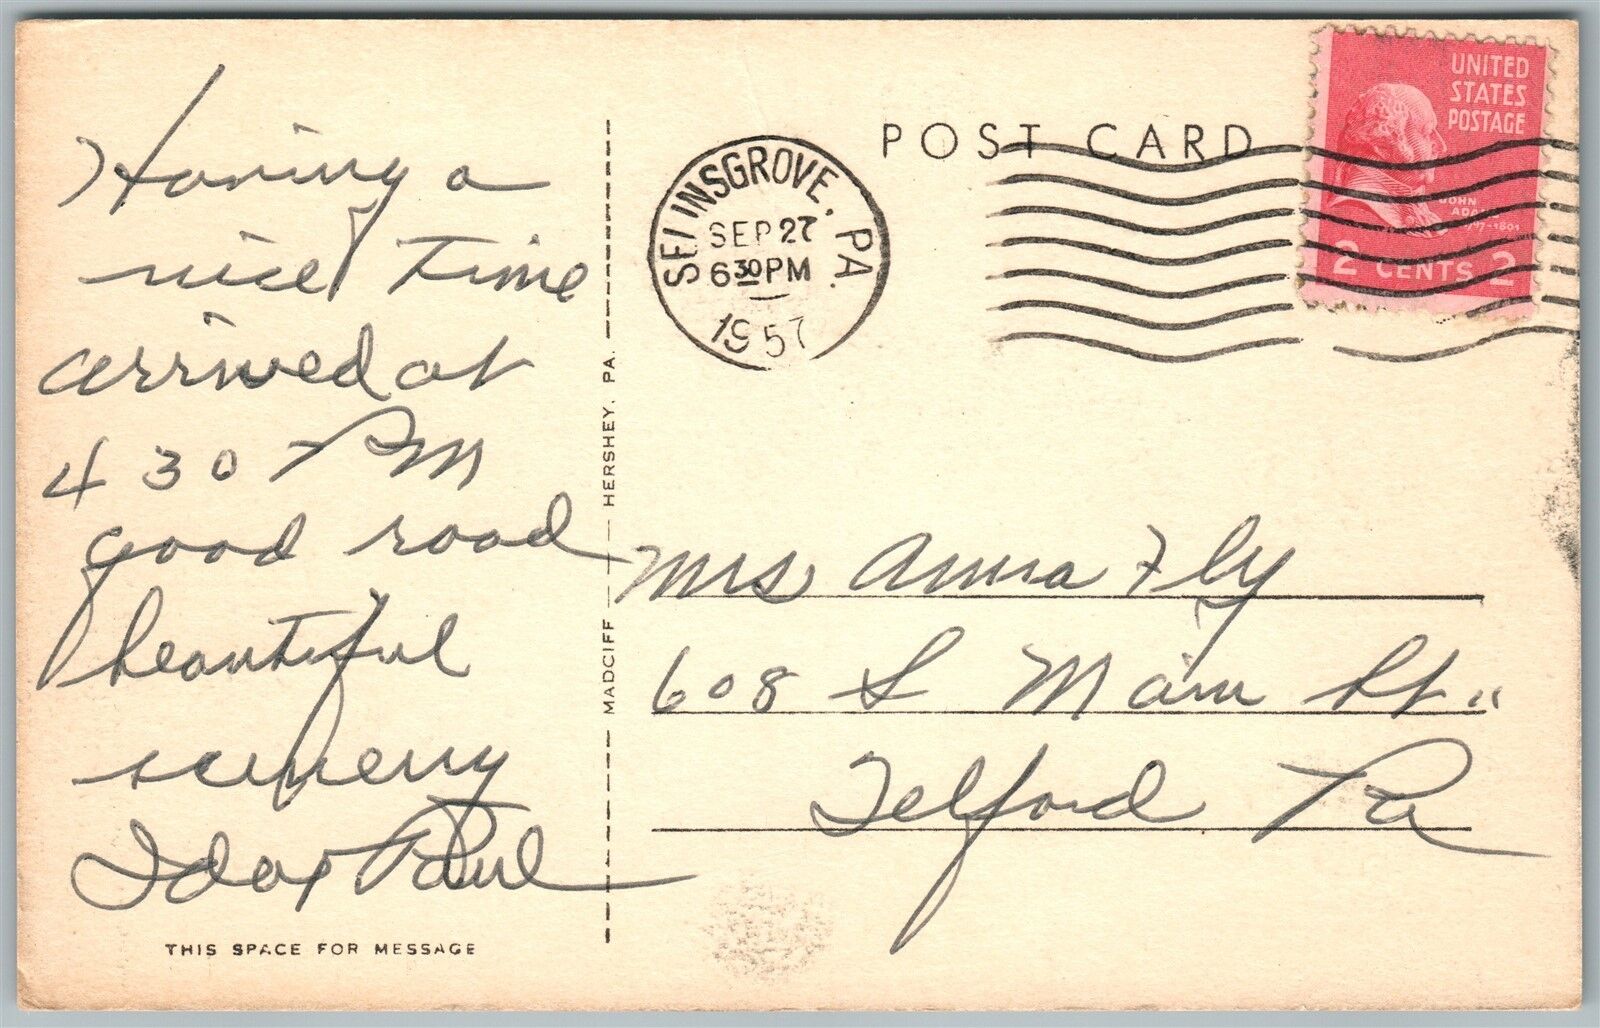 Having a
nice time
arrived at
4 30 PM
good road
beautiful
scenery
Ida & Paul
THIS SPACE FOR MESSAGE
MADCIFF — HERSHEY, PA.
POST CARD
SELINSGROVE, PA.
SEP 27
6 30 PM
1957
UNITED
STATES
POSTAGE
JOHN
ADAMS
1797-1801
2 CENTS 2
Mrs Anna Fly
608 S Main St.,
Telford Pa